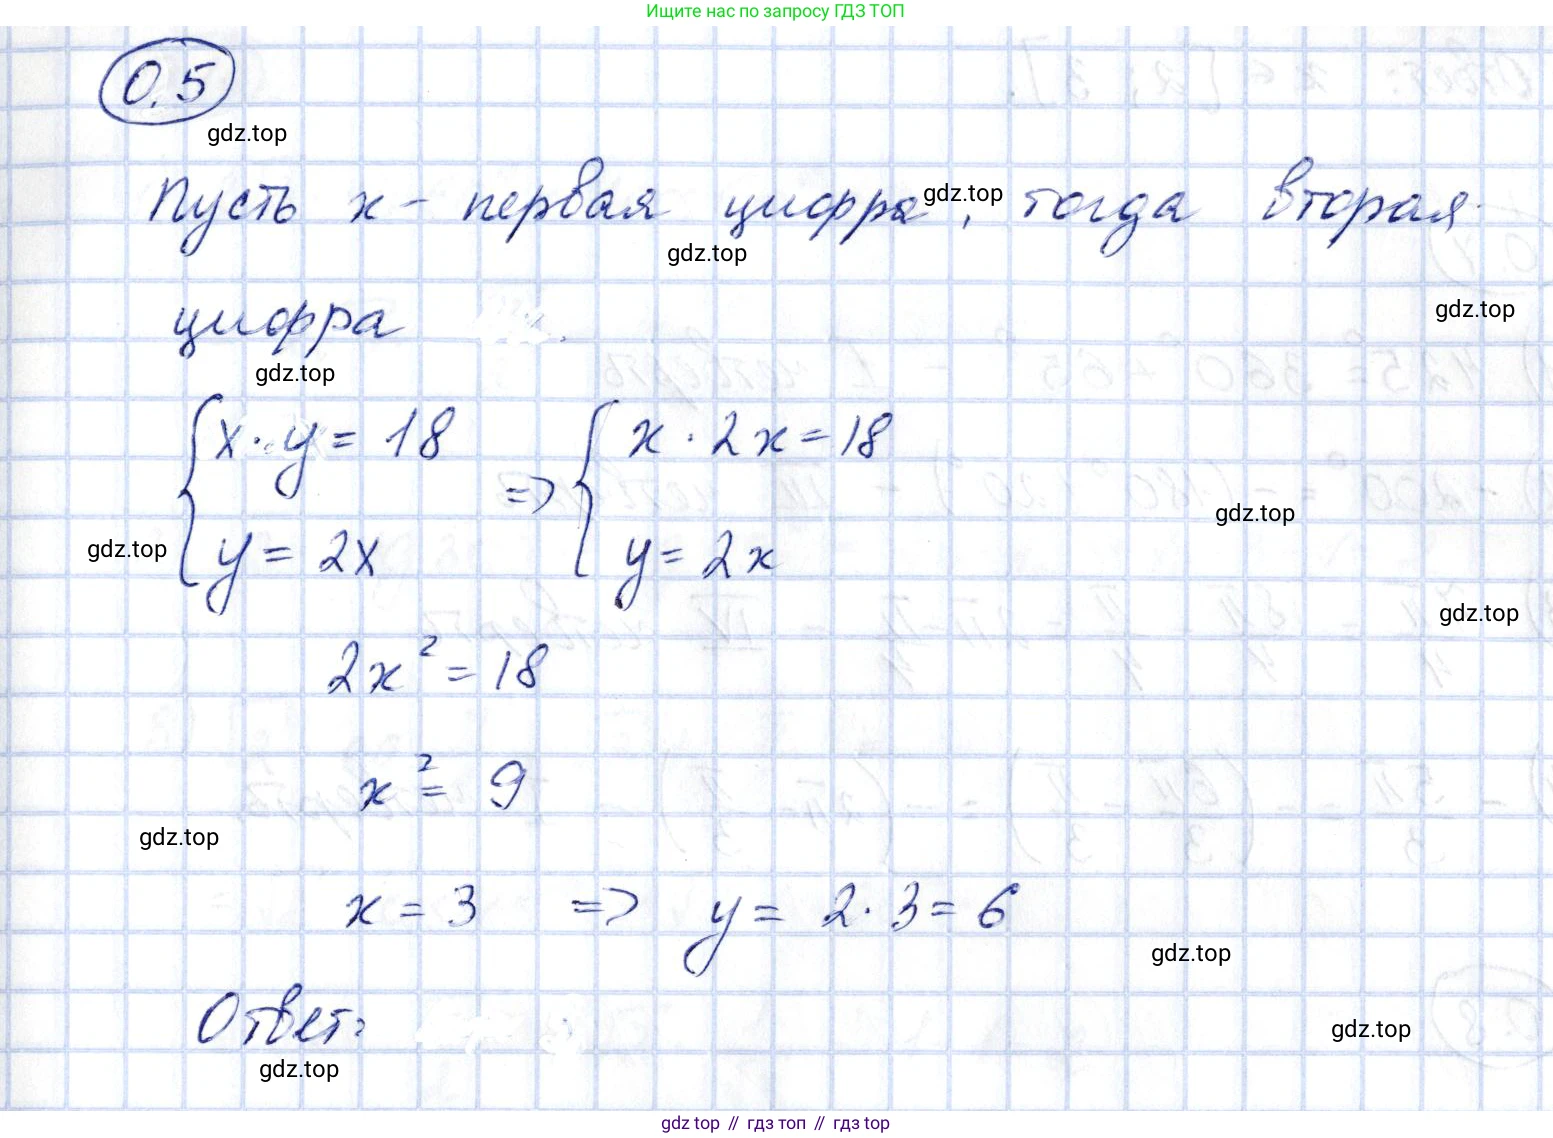 Ищите нас по запросу ГДЗ ТОП
0.5
gdz.top
Пусть x - первая цифра, тогда вторая
gdz.top
gdz.top
цифра
gdz.top
gdz.top
{ x · y = 18 => { x · 2x = 18
gdz.top
y = 2x y = 2x
gdz.top
gdz.top
2x² = 18
x² = 9
gdz.top
x = 3 => y = 2 · 3 = 6
gdz.top
Ответ:
gdz.top
gdz.top
gdz.top // гдз топ // гдз.top